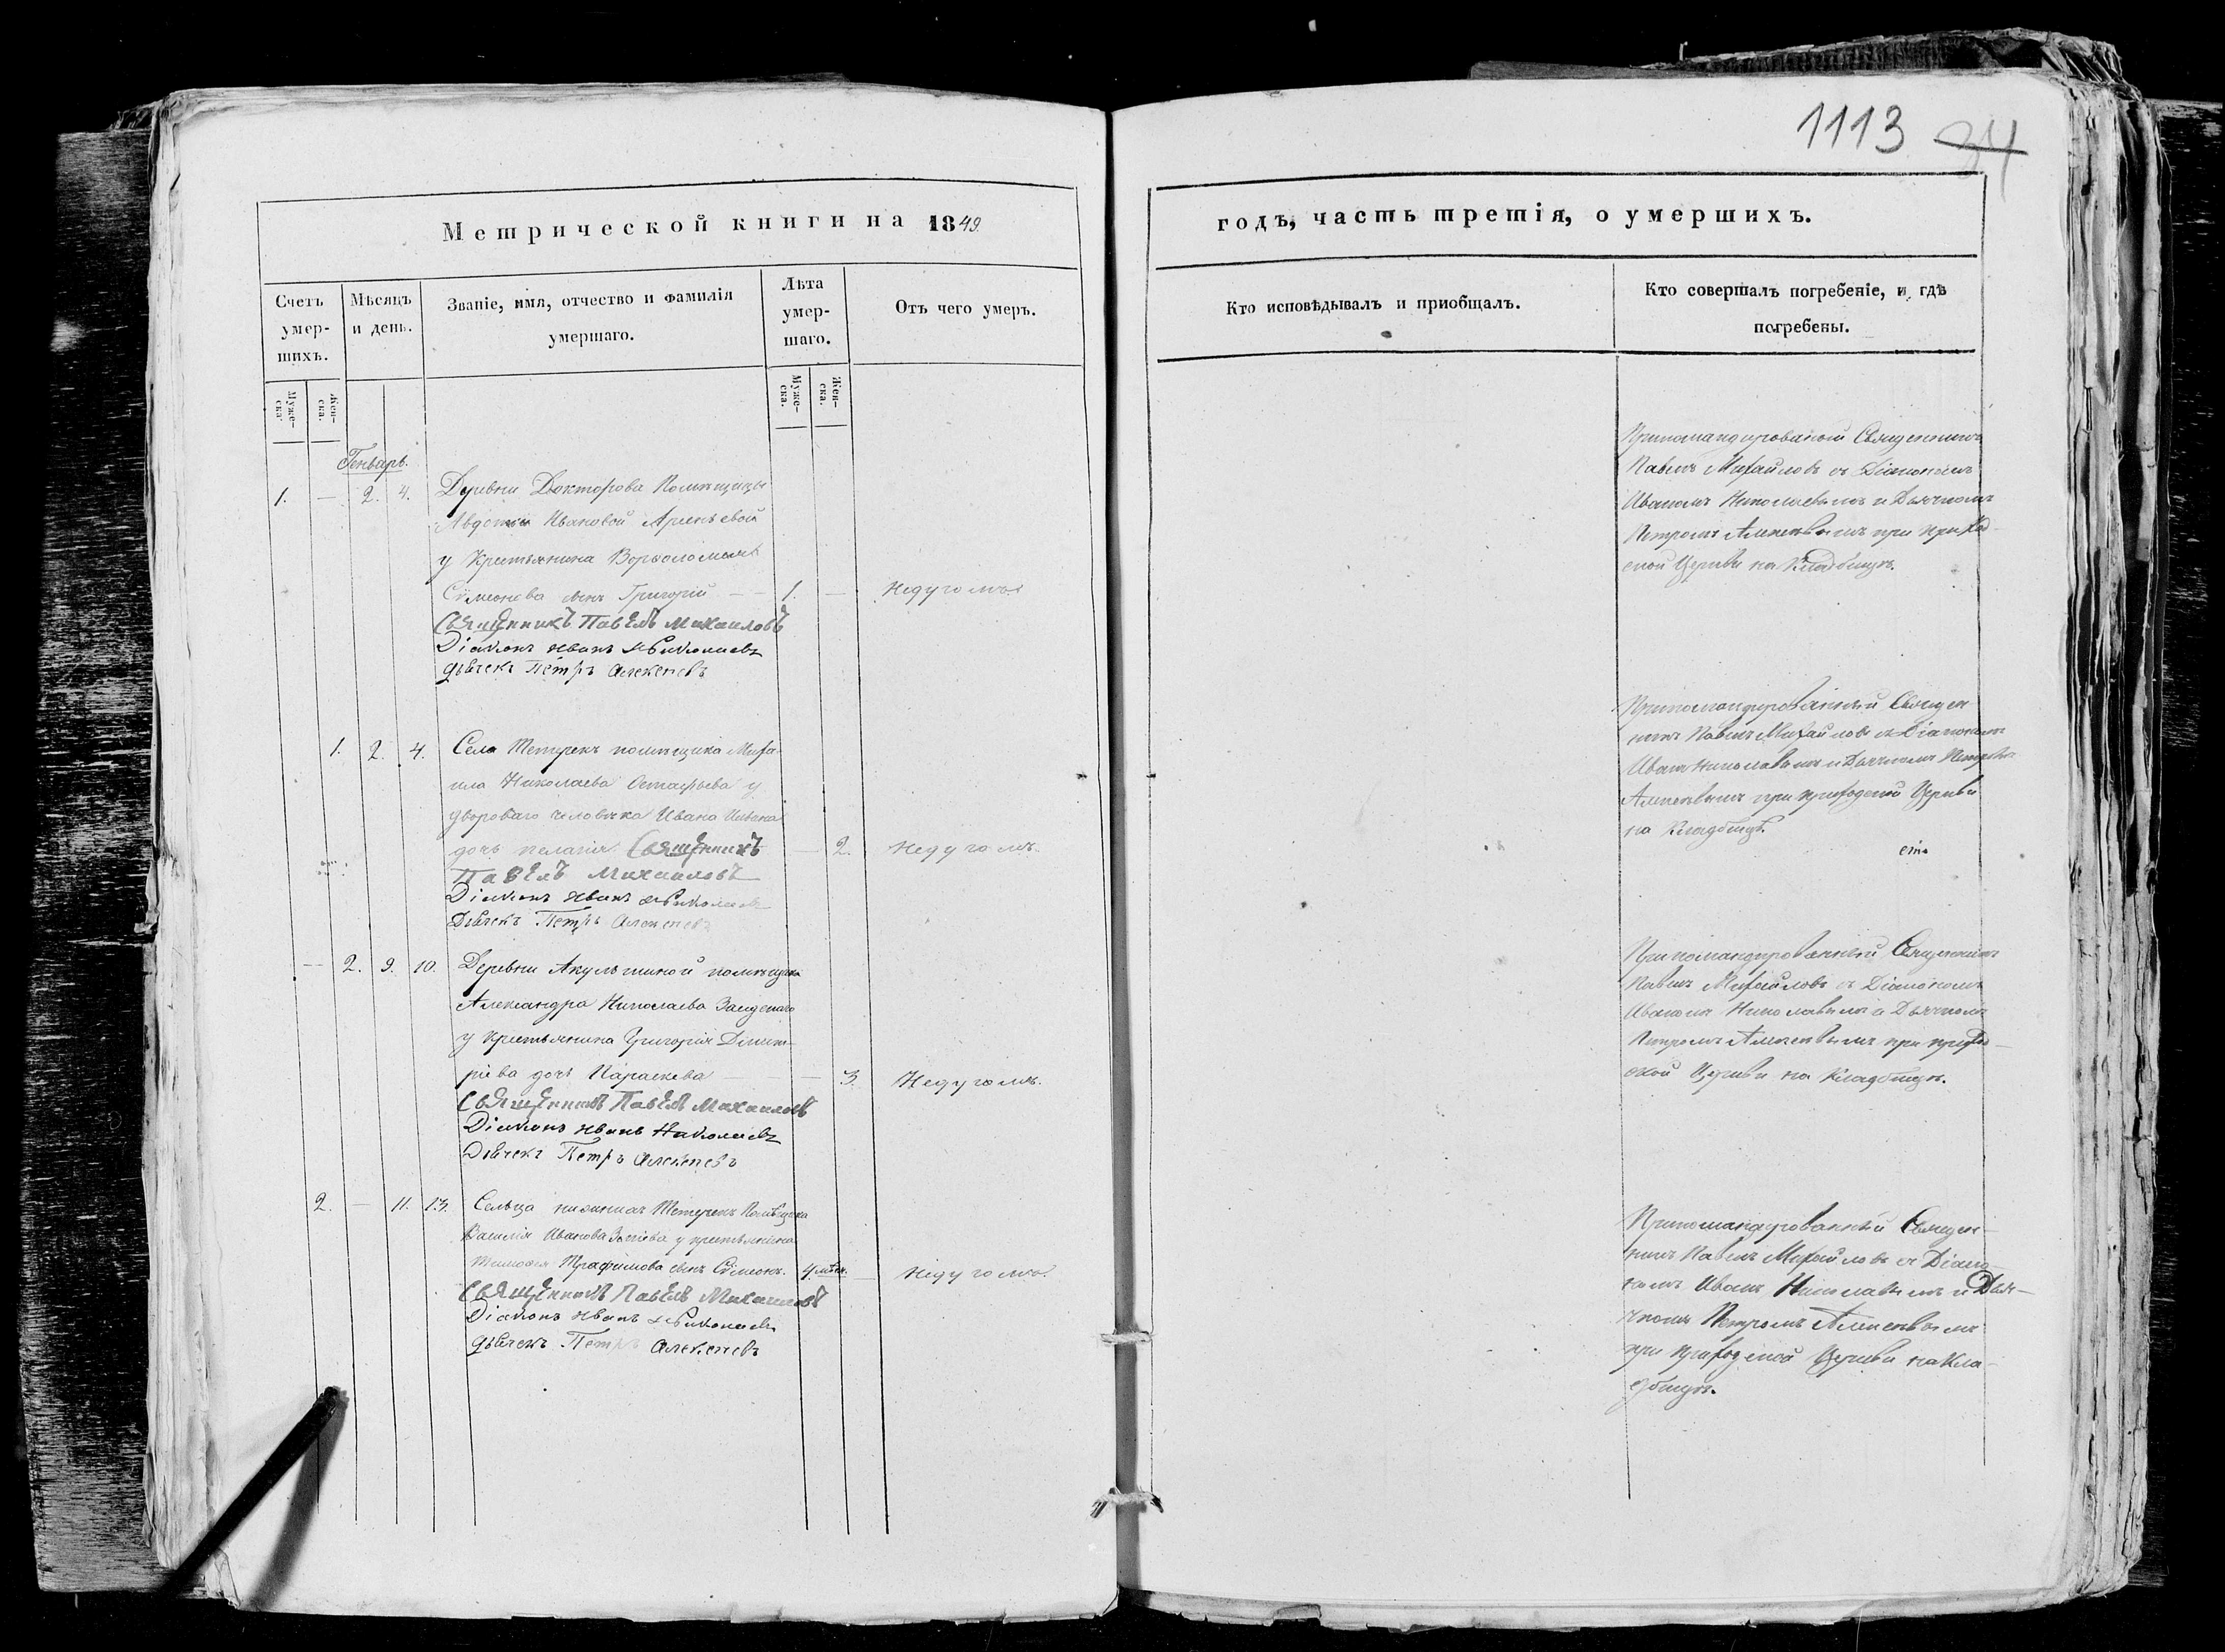 1113 34
Метрической книги на 1849.
годъ, часть третія, о умершихъ.
Счетъ умер-шихъ.
Мѣсяцъ и день.
Званіе, имя, отчество и фамилія умершаго.
Лѣта умер-шаго.
Отъ чего умеръ.
Кто исповѣдывалъ и приобщалъ.
Кто совершалъ погребеніе, и гдѣ погребены.
Муже-ска.
Жен-ска.
Муже-ска.
Жен-ска.
Генварь.
1. — 2. 4. Деревни Докторова Помѣщицы
Авдотьи Ивановой Арсеньевой
у Крестьянина
Симеонова сынъ Григорій — 1. — Недугомъ
Священникъ Павелъ Михаиловъ
Діаконъ Иванъ Николаевъ
дьячекъ Петръ Алексеевъ
Прикомандированой Священникъ
Павелъ Михайловъ съ Діакономъ
Иваномъ Николаевымъ и Дьячкомъ
Петромъ Алексѣевымъ при приход-
ской Церкви на Кладбищѣ.
1. 2. 4. Села Тетерекъ помѣщика Миха
ила Николаева Остафьева у
двороваго человѣка Ивана
дочь пелагія Священникъ — 2. Недугомъ.
Павелъ Михаиловъ
Діаконъ Иванъ Николаевъ
Дьячекъ Петръ Алексеевъ
Прикомандированный Священ
никъ Павелъ Михайловъ съ Діакономъ
Иваномъ Николаевымъ и Дьячкомъ Петромъ
Алексѣевымъ при приходской Церкви
на Кладбищѣ.
— 2. 9. 10. Деревни Акульшиной помѣщика
Александра Николаева
у Крестьянина Григорія Димит-
ріева дочь Параскева — 3. Недугомъ.
Священникъ Павелъ Михаиловъ
Діаконъ Иванъ Николаевъ
Дьячекъ Петръ Алексеевъ
Прикомандированный Священникъ
Павелъ Михайловъ съ Діакономъ
Иваномъ Николаевымъ и Дьячкомъ
Петромъ Алексѣевымъ при приход-
ской Церкви на Кладбищѣ.
2. — 11. 13. Сельца Тетерекъ Помѣщика
Василія Иванова у крестьянина
Трафимова сынъ Симеонъ. 4 мѣся. — Недугомъ.
Священникъ Павелъ Михаиловъ
Діаконъ Иванъ Николаевъ
дьячекъ Петръ Алексеевъ
Прикомандированный Священ-
никъ Павелъ Михайловъ съ Діако-
номъ Иваномъ Николаевымъ и Дья-
чкомъ Петромъ Алексѣевымъ
при приходской Церкви на Кла-
дбищѣ.